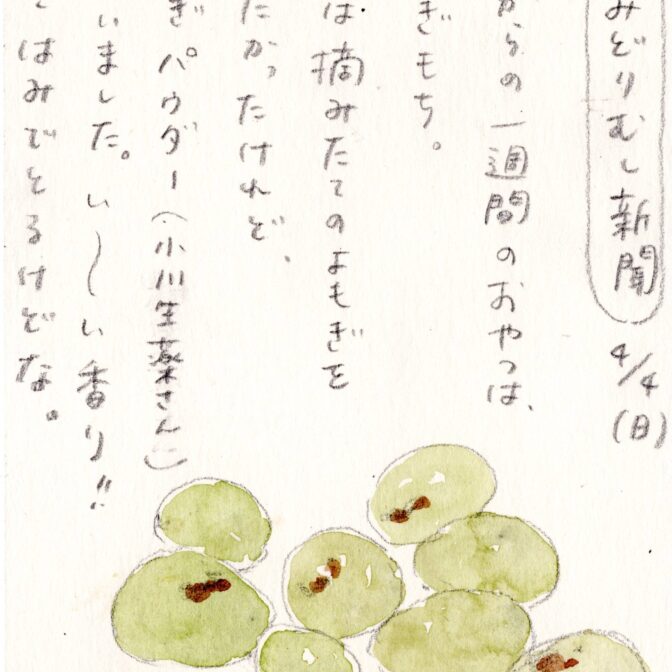 みどりむし新聞 4/4(日)
からの一週間のおやつは、
ぎもち。
は摘みたてのよもぎを
たかったけれど、
ぎパウダー(小川生薬さん)
いました。い〜い香り!!
はみでとるけどな。